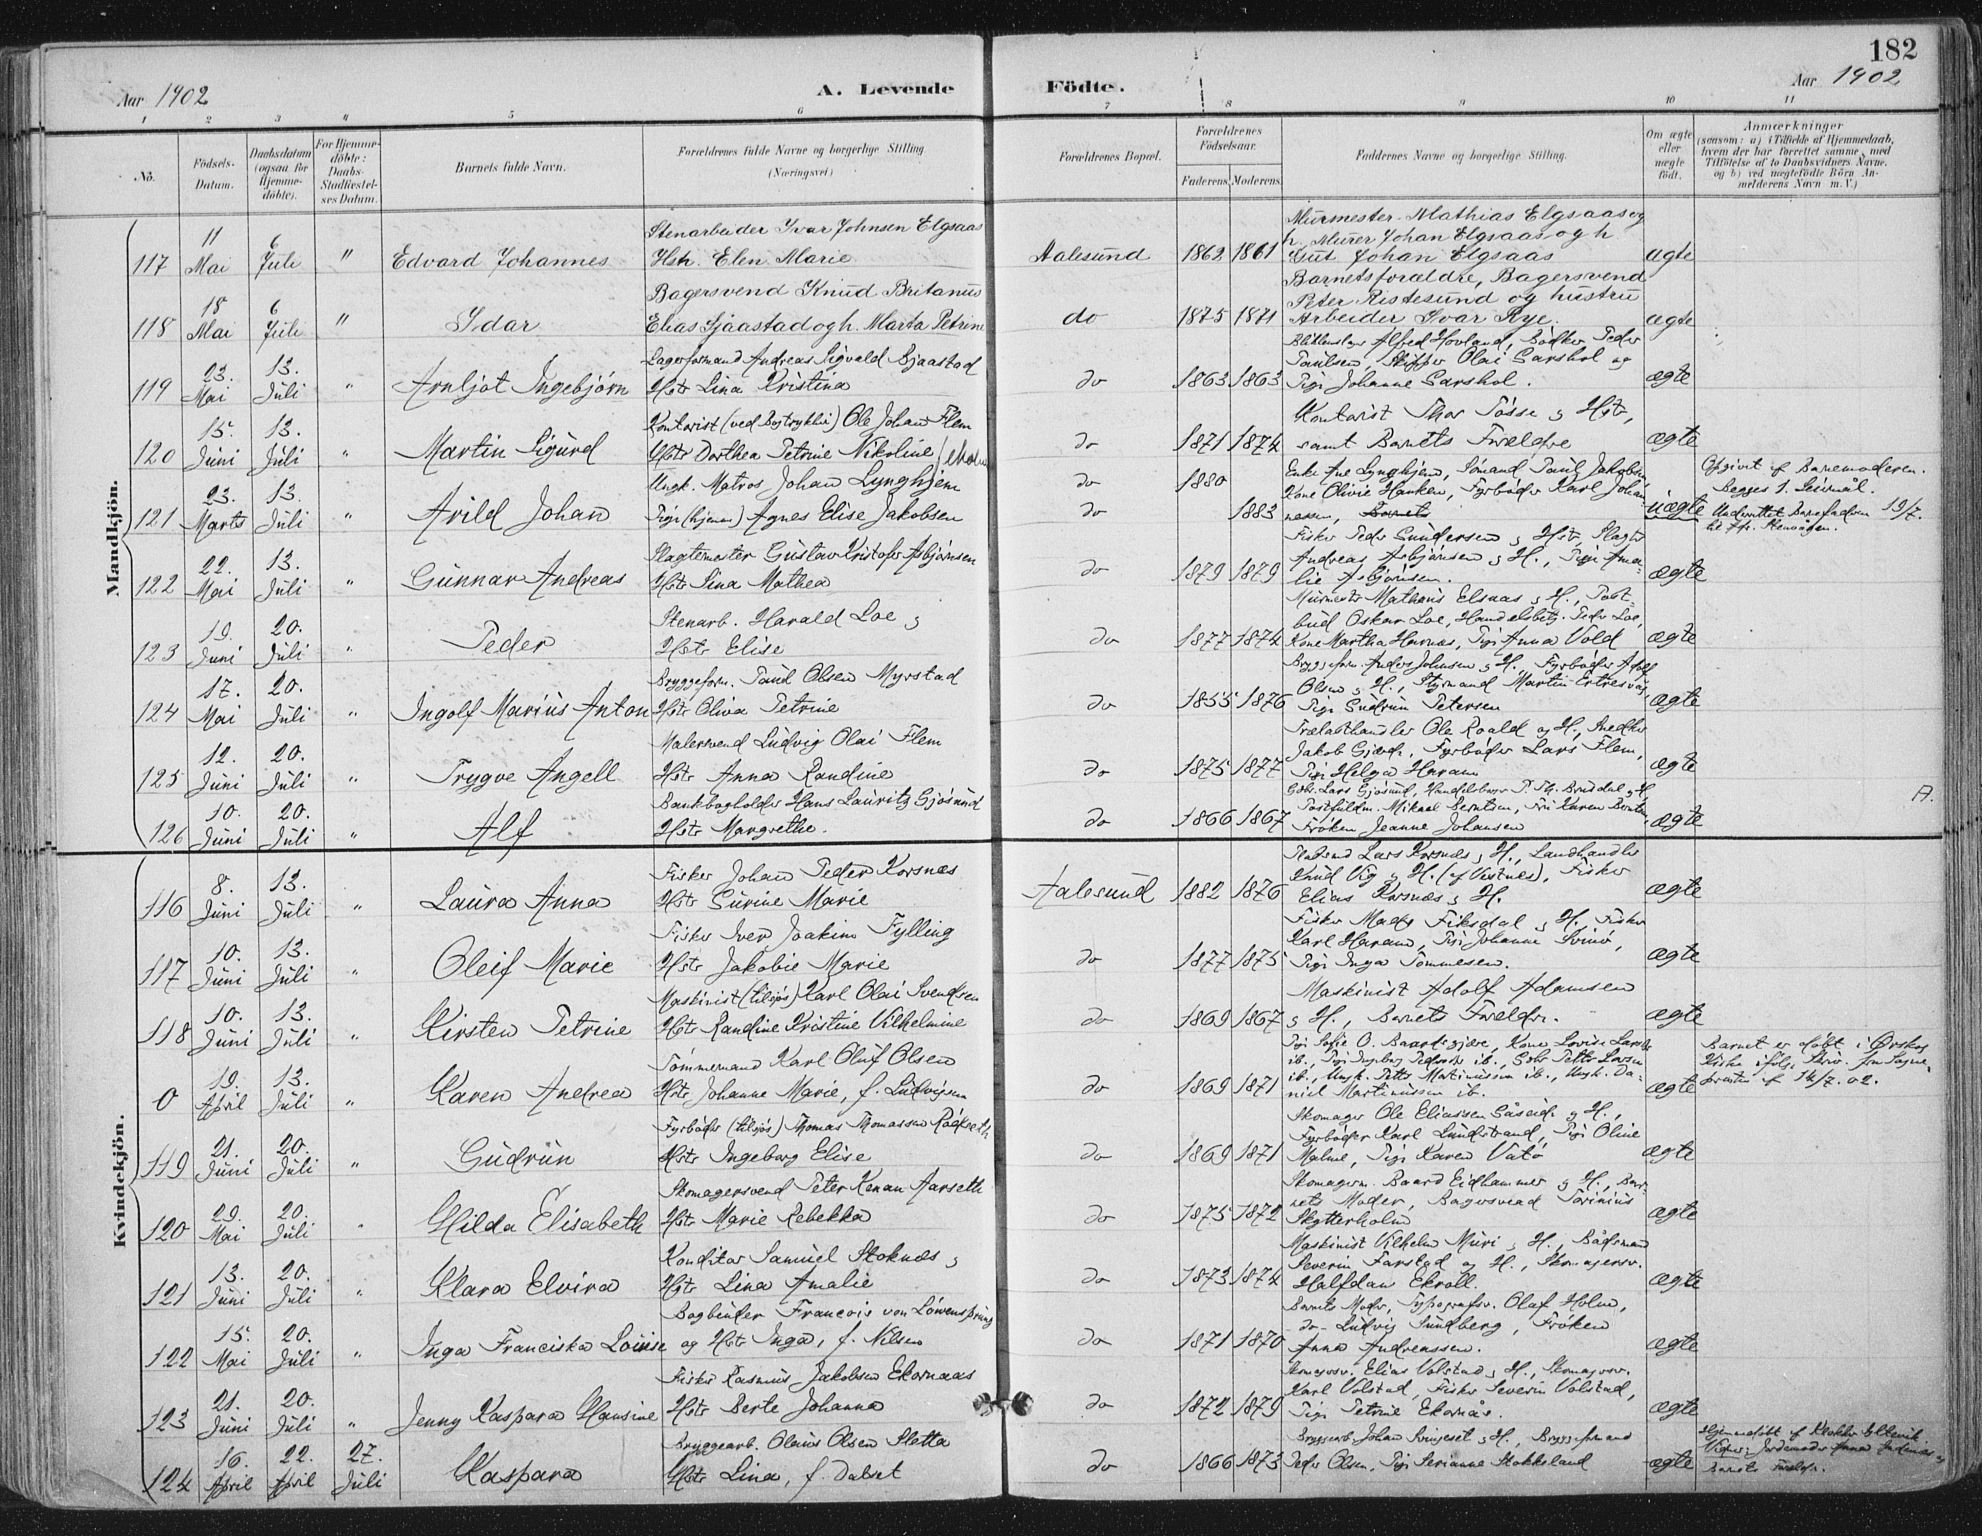 182
Aar 1902
A. Levende
Födte.
Aar 1902
1 2 3 4 5 6 7 8 9 10 11
No.
Födsels-Datum.
Daabsdatum (ogsaa for Hjemmedöbte).
For Hjemmedöbte: Daabs-Stadfæstelses Datum.
Barnets fulde Navn.
Forældrenes fulde Navne og borgerlige Stilling (Næringsvei)
Forældrenes Bopæl.
Forældrenes Födselsaar.
Faderens. Moderens.
Faddernes Navne og borgerlige Stilling.
Om ægte eller uægte födt.
Anmærkninger
(saasom: a) i Tilfælde af Hjemmedaab, hvem der har forrettet samme, med Tilföielse af to Daabsvidners Navne, og b) ved uægtefödte Börn Anmelderens Navn m. V.)
Mandkjön.
117 11 Mai 6 Juli " Edvard Johannes
Stenarbeider Ivar Johnsen Elgsaas
Hstr. Elen Marie
Aalesund 1862 1861
Murmester Mathias Elgsaas og
h. Murer Johan Elgsaas og h.
Gut Johan Elgsaas
ægte
118 18 Mai 6 Juli " Idar
Bagersvend Knud Britanus
Elias Sjaastad og h. Marta Petrine
do 1875 1871
Barnets forældre, Bagersvend
Peter Ristesund og hustru
Arbeider Ivar Rye.
ægte
119 23. Mai 13. Juli " Arnljot Ingebjørn
Lagerformand Andreas Sigvald Bjaastad
Hstr Lina Kristina
do 1863 1863
Alfred Hovland, Bødker Peder
Paulsen, Skipper Olai Sarshol og
Pige Johanne Sarshol.
ægte
120 15. Juni 13. Juli " Martin Sigurd
Kontorist (ved Bogtrykkeri) Ole Johan Flem
Hstr Dorthea Petrine Nikoline
do 1871 1874
Kontorist Thor Tøsse og Hstr,
samt Barnets Forældre
ægte
121 23. Marts 13. Juli " Arild Johan
Ungk. Matros Johan Lynghjem
Pige (hjemme) Agnes Elise Jakobsen
do 1880
do 1883
Enke Ane Lynghjem, Sømand Paul Jakobsen,
Kone Olivie Hanken, Fyrbøder Karl Johan
nesen, Barnets
uægte
Opgivet af Barnemoderen.
Begges 1. Leiermål.
Underrettet Barnefaderen 19/7.
122 22. Mai 13. Juli " Gunnar Andreas
Slagtemester Gustav Kristofer Asbjørnsen
Hstr Lina Mathea
do 1879 1879
Fisker Peder Gundersen og Hstr, Slagter
Andreas Asbjørnsen og H., Pige Ama-
lie Asbjørnsen.
ægte
123 19. Juni 20. Juli " Peder
Stenarb. Harald Loe og
Hstr Elise
do 1877 1874
Murmester Matheus Elsaas og H., Post-
bud Oskar Loe, Handelsbetj. Peder Loe,
Kone Martha Harnæs, Pige Anna Vold
ægte
124 17. Mai 20. Juli " Ingolf Marius Anton
Bryggeform. Paul Olsen Myrstad
Hstr Oliva Petrine
do 1855 1876
Bryggeform. Anders Johnsen og H., Fyrbøder Adolf
Olsen og H., Styrmand Martin Ertresvåg,
Pige Gudrun Petersen
ægte
125 12. Juni 20. Juli " Trygve Angell
Malersvend Ludvig Olai Flem
Hstr Anna Randine
do 1875 1877
Trælasthandler Ole Roald og H., Snedker
Jakob Gjerde, Fyrbøder Lars Flem,
Pige Helga Haram
ægte
126 10. Juni 20. Juli " Alf
Bankbogholder Hans Lauritz Gjøsund
Hstr Margrethe.
do 1866 1867
Gbr. Lars Gjøsund, Handelsborger P. Brusdal og H,
Postfuldm. Mikael Berntsen, Fru Karen Berntsen,
Frøken Jeanne Johansen
ægte
A.
Kvindekjön.
116 8. Juni 13. Juli " Laura Anna
Fisker Johan Peder Korsnæs
Hstr Gurine Marie
Aalesund 1882 1876
Lars Korsnæs og H., Landhandler
Knud Vig og H. (af Vestnes), Fisker
Elias Korsnæs og H.
ægte
117 10. Juni 13. Juli " Oleif Marie
Fisker Iver Joakim Fylling
Hstr Jakobie Marie
do 1877 1875
Fisker Mads Fiksdal og H. Fisker
Karl Haram, Pige Johanne Svinø,
Pige Inga Tommesen.
ægte
118 10. Juni 13. Juli " Kirsten Petrine
Maskinist (tilsjøs) Karl Olai Svendsen
Hstr Randine Kristine Vilhelmine
do 1869 1867
Maskinist Adolf Adamsen
og H., Barnets Forældre.
ægte
0 19. April 13. Juli " Karen Andrea
Tømmermand Karl Oluf Olsen
Hstr Johanne Marie, f. Ludvigsen
do 1869 1871
Pige Sofie O. Baardsgjære, Kone Lovise Larsen
ib., Pige Ingeborg Pedersen ib., Gbr Petter Larsen
ib., Ungk. Petter Martinussen ib., Ungk. Da-
niel Martinussen ib.
ægte
Barnet er døbt i Ørskog
Kirke ifølge Skriv. fra Sogne-
presten af 14/7.02.
119 21. Juni 20. Juli " Gudrun
Fyrbøder (tilsjøs) Thomas Thomassen Rødseth
Hstr Ingeborg Elise
do 1869 1871
Skomager Ole Eliassen Gåseide og H.,
Fyrbøder Karl Lundstrand, Pige Oline
Malme, Pige Karen Vatø
ægte
120 29. Mai 20. Juli " Hilda Elisabeth
Skomagersvend Peter Kenan Aarseth
Hstr Marie Rebekka
do 1875 1872
Skomagerm. Baard Eidhammer og H., Bar-
nets Moder, Bagersvend Torinius
Skytterholm
ægte
121 13. Juni 20. Juli " Klara Elvira
Konditor Samuel Stoknæs og
Hstr Lina Amalie
do 1873 1874
Maskinist Vilhelm Muri og H., Bådsmand
Severin Farstad og H., Skomagersv.
Halfdan Ekroll.
ægte
122 15. Mai 20. Juli " Inga Franciska Louise
Bogbinder Francois von Løwensprung
og Hstr Inga, f. Nilsen
do 1871 1870
Barnets Moder, Typografsv. Olaf Holm,
-do- Ludvig Sundberg, Frøken
Anna Andreassen.
ægte
123 21. Juni 20. Juli " Jenny Kaspara Hansine
Fisker Rasmus Jakobsen Ekornaas
Hstr Berte Johanna
do 1872 1879
Skomagersv. Elias Volstad og H., Skomagersv.
Karl Volstad, Fisker Severin Volstad,
Pige Petrine Ekornås.
ægte
124 16. April 22. April 27. Juli Kaspara
Bryggearb. Olaus Olsen Sletta
Hstr Lina, f. Dalset
do 1866 1873
Bryggearb. Johan Svinset og H., Bryggeformand
Peder Olsen, Pige Serianne Stokkeland
ægte
Hjemmedøbt af Klokker Ellevik
Vidner: Jordemoder Anna
Barnets Forældre.